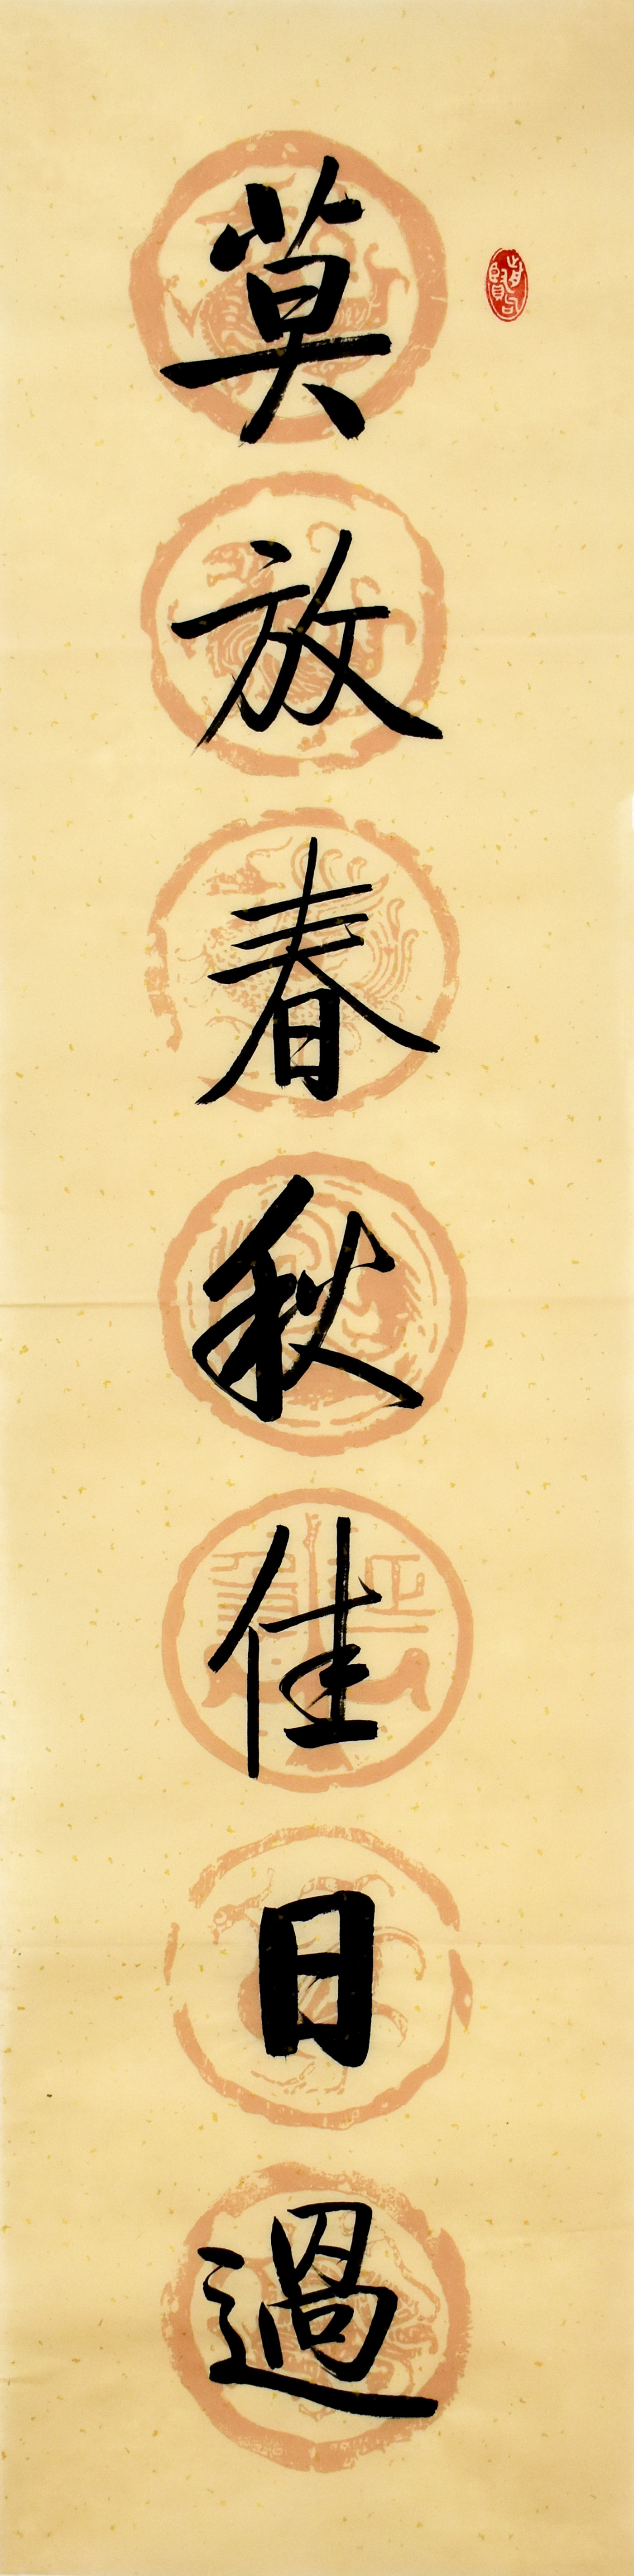 莫放春秋佳日過